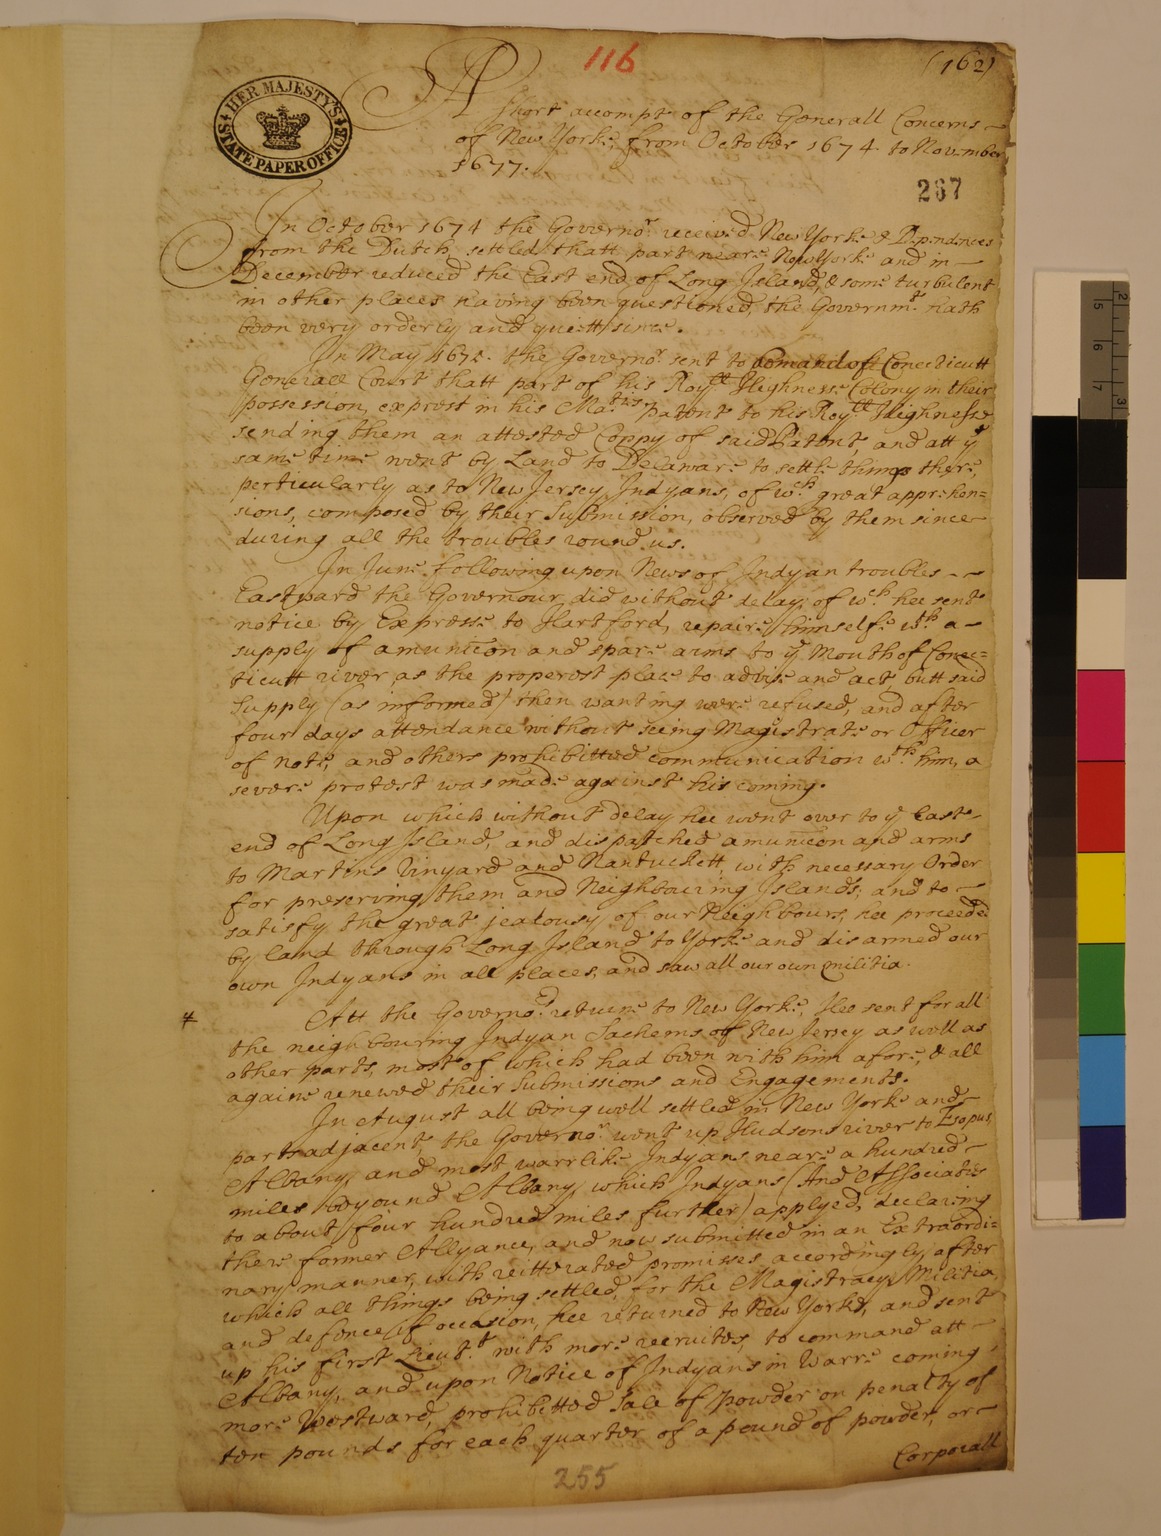 116
(162)
HER MAJESTY'S STATE PAPER OFFICE
A short accompt of the Generall Concerns
of New Yorke, from October 1674 to November
1677.
267
In October 1674 the Governor. received New Yorke & Dependences
from the Dutch, settled thatt part neare New Yorke and in
December reduced the East end of Long Island, & some turbulent
in other places having been questioned, the Governmt. hath
been very orderly and quiett since.
In May 1675. the Governor. sent to demand of Conecticutt
Generall Court thatt part of his Royll Highnesse Colony in their
possession, exprest in his Ma.ties patent to his Roy.ll Highnesse
sending them an attested Coppy of said Patent, and att ye
same time went by Land to Delaware to settle things there,
perticularly as to New Jersey Indyans, of wch. great apprehen=
sions, composed by their Submission, observed by them since
during all the troubles round us.
In June following upon News of Indyan troubles
Eastward the Governour did without delay, of wch. hee sent
notice by Expresse to Hartford, repaire himselfe wth a
supply of amunicon and spare arms to ye Mouth of Conec=
ticutt river as the properest place to advise and act, butt said
Supply (as informed) then wanting were refused, and after
four days attendance without seeing Magistrate or Officer
of note, and others prohibitted communication wth. him, a
severe protest was made against his coming.
Upon which without delay hee went over to ye East
end of Long Island, and dispatched amunicon and arms
to Martins Vinyard and Nantuckett, with necessary Order
for preserving them and Neighbouring Islands; and to
satisfy the great jealousy of our Neighbours, hee proceeded
by land through Long Island to Yorke and disarmed our
own Indyans in all places, and saw all our own militia.
# Att the Governors. returne to New Yorke, Hee sent for all
the neighbouring Indyan Sachems of New Jersey as well as
other parts, most of which had been with him afore, & all
againe renewed their Submissions and Engagements.
In August all being well settled in New Yorke and
parts adjacent, the Governor. went up Hudsons river to Esopus,
Albany, and most warrlike Indyans neare a hundred
miles beyound Albany, which Indyans (And Associates
to about four hundred miles further) applyed, declaring
there former Allyance, and now submitted in an Extraordi=
nary manner, with reitterated promisses accordingly, after
which all things being settled, for the Magistracy, Militia,
and defence if occasion, hee returned to New Yorke, and sent
up his first Lieut.t with more recruites, to command att
Albany, and upon Notice of Indyans in Warre coming
more Westward, prohibitted Sale of powder on penalty of
ten pounds for each quarter of a pound of powder, or
Corporall
255